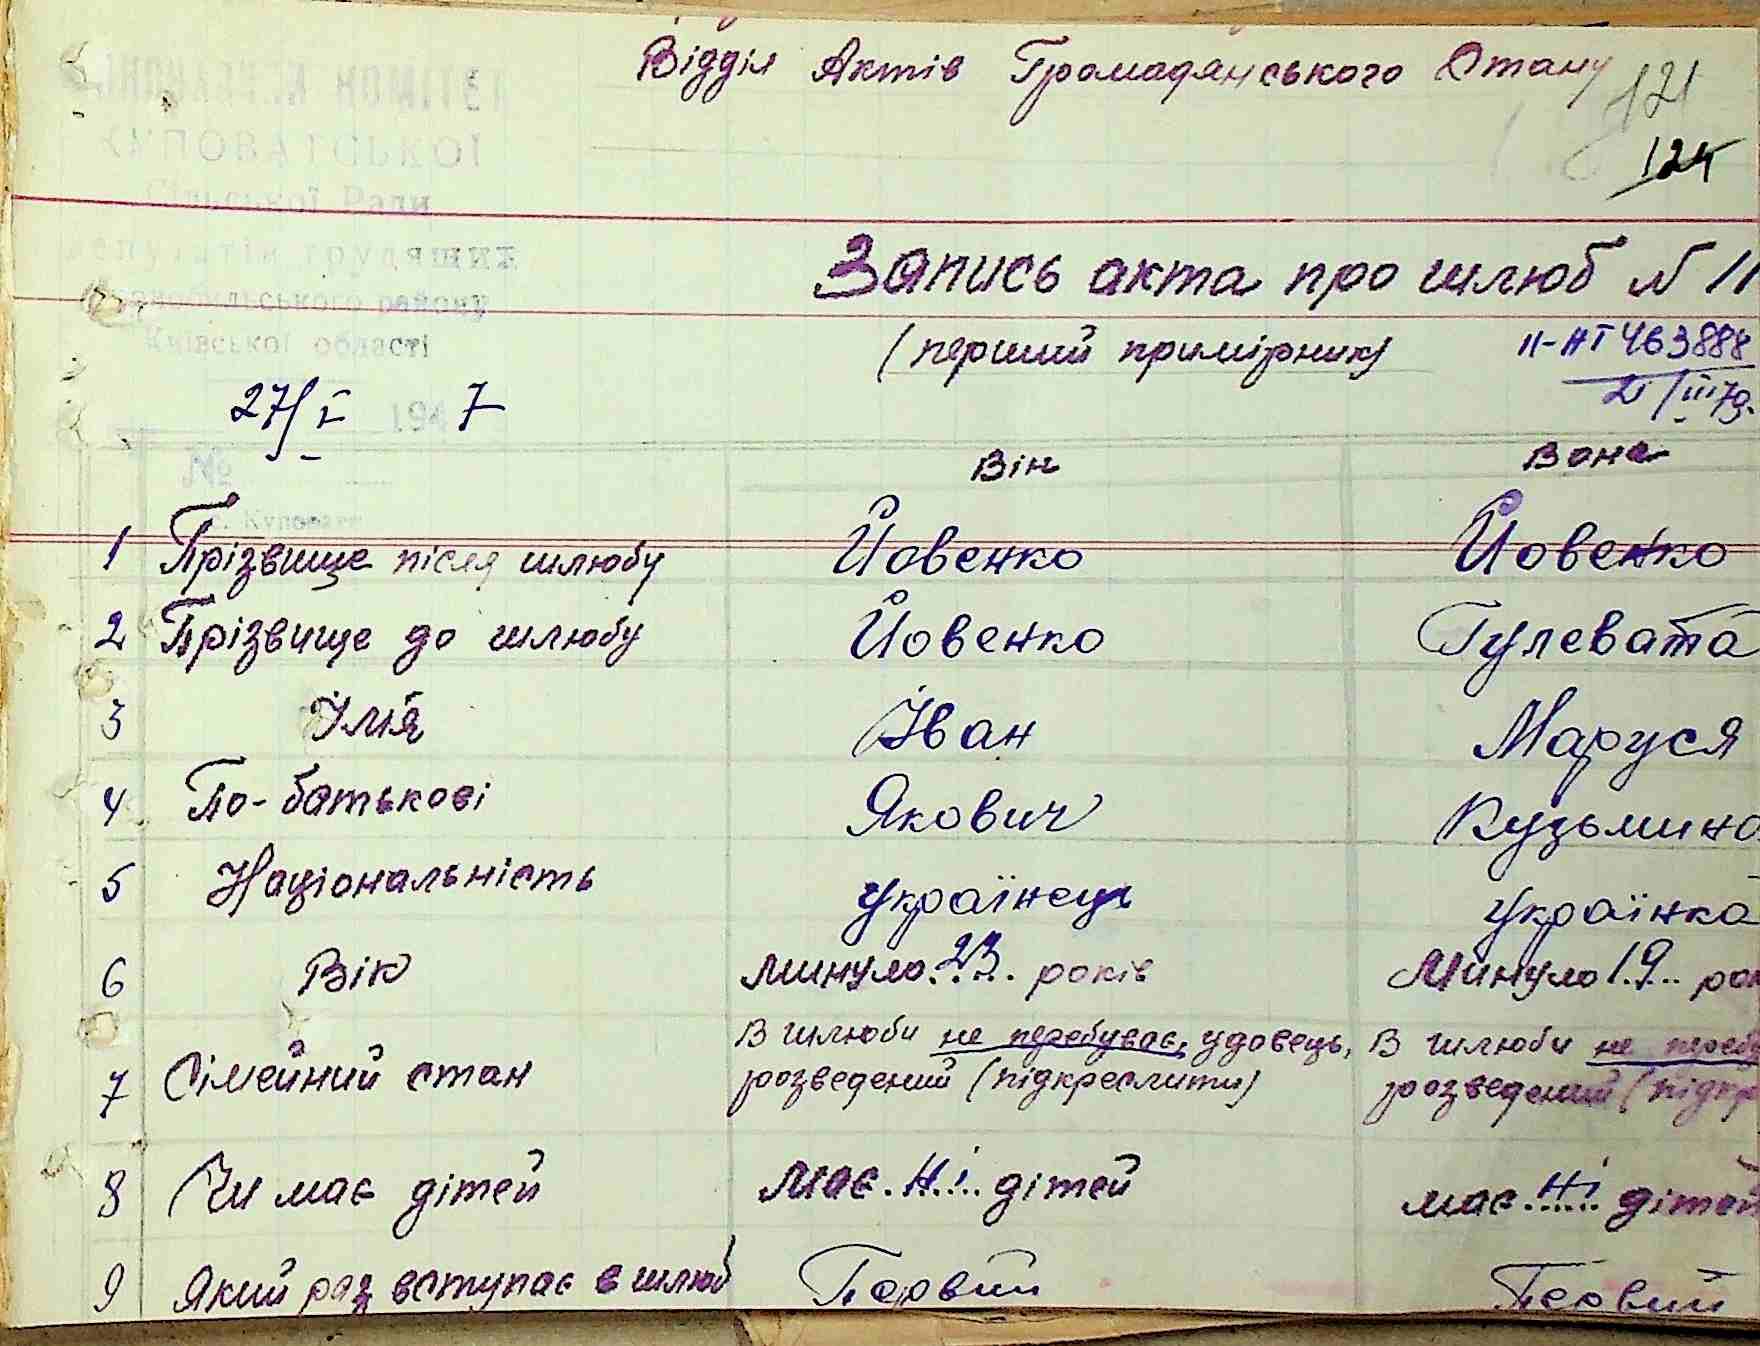 Відділ Актів Громадянського Стану
121
124
КУПОВАТСЬКОЇ
Сільської Ради
депутатів трудящих
району
Київської області
Запись акта про шлюб № 11
(перший примірник)
II-НТ 463888
27/V 1947
№
с. Куповате
Він Вона
1 Прізвище після шлюбу Йовенко Йовенко
2 Прізвище до шлюбу Йовенко Гулевата
3 Імя Іван Маруся
4 По-батькові Якович Кузьмино
5 Національність українець українка
6 Вік минуло 23 років Минуло 19 рок
7 Сімейний стан В шлюби не перебуває, удовець, В шлюби не переб
розведений (підкреслити) розведений (підкр
8 Чи має дітей має Ні дітей має Ні дітей
9 Який раз вступає в шлюб Первий Первий